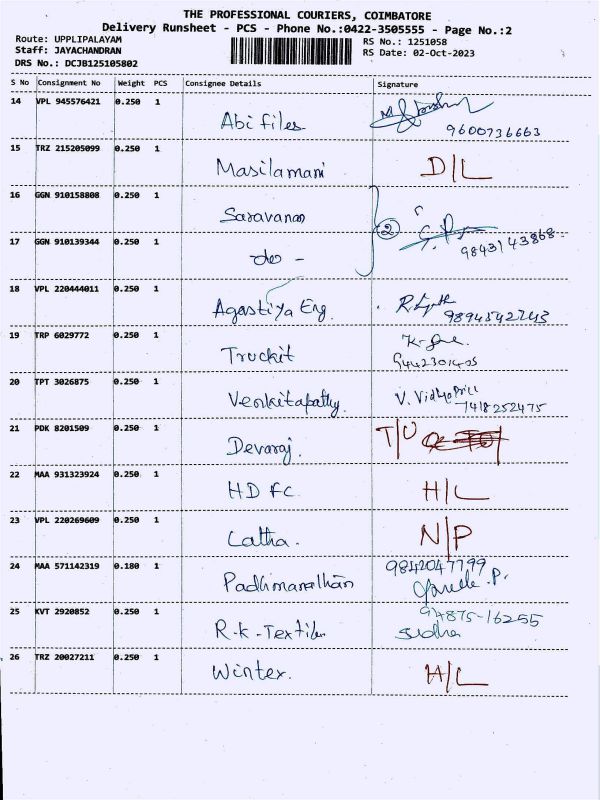 THE PROFESSIONAL COURIERS, COIMBATORE
Delivery Runsheet - PCS - Phone No.:0422-3505555 - Page No.:2
Route: UPPLIPALAYAM
RS No.: 1251058
Staff: JAYACHANDRAN
RS Date: 02-Oct-2023
DRS No.: DCJB125105802
S No Consignment No Weight PCS Consignee Details Signature
14 VPL 945576421 0.250 1
Abi files
9600736663
15 TRZ 215205099 0.250 1
Masilamani D/L
16 GGN 910158808 0.250 1
Saravanan
2
17 GGN 910139344 0.250 1
9843143868
do -
18 VPL 220444011 0.250 1
Agastiya Eng.
9894542743
19 TRP 6029772 0.250 1
Truckit
20 TPT 3026875 0.250 1
Venkitapathy. V. Vidhya Priya
7418252475
21 PDK 8201509 0.250 1
Devaraj. T/U
22 MAA 931323924 0.250 1
HDFC H/L
23 VPL 220269609 0.250 1
Latha. N/P
24 MAA 571142319 0.180 1
9842047799
Padhmanathan
25 KVT 2920852 0.250 1
94875-16255
R.K-Textiles Sudha
26 TRZ 20027211 0.250 1
Wintex. H/L